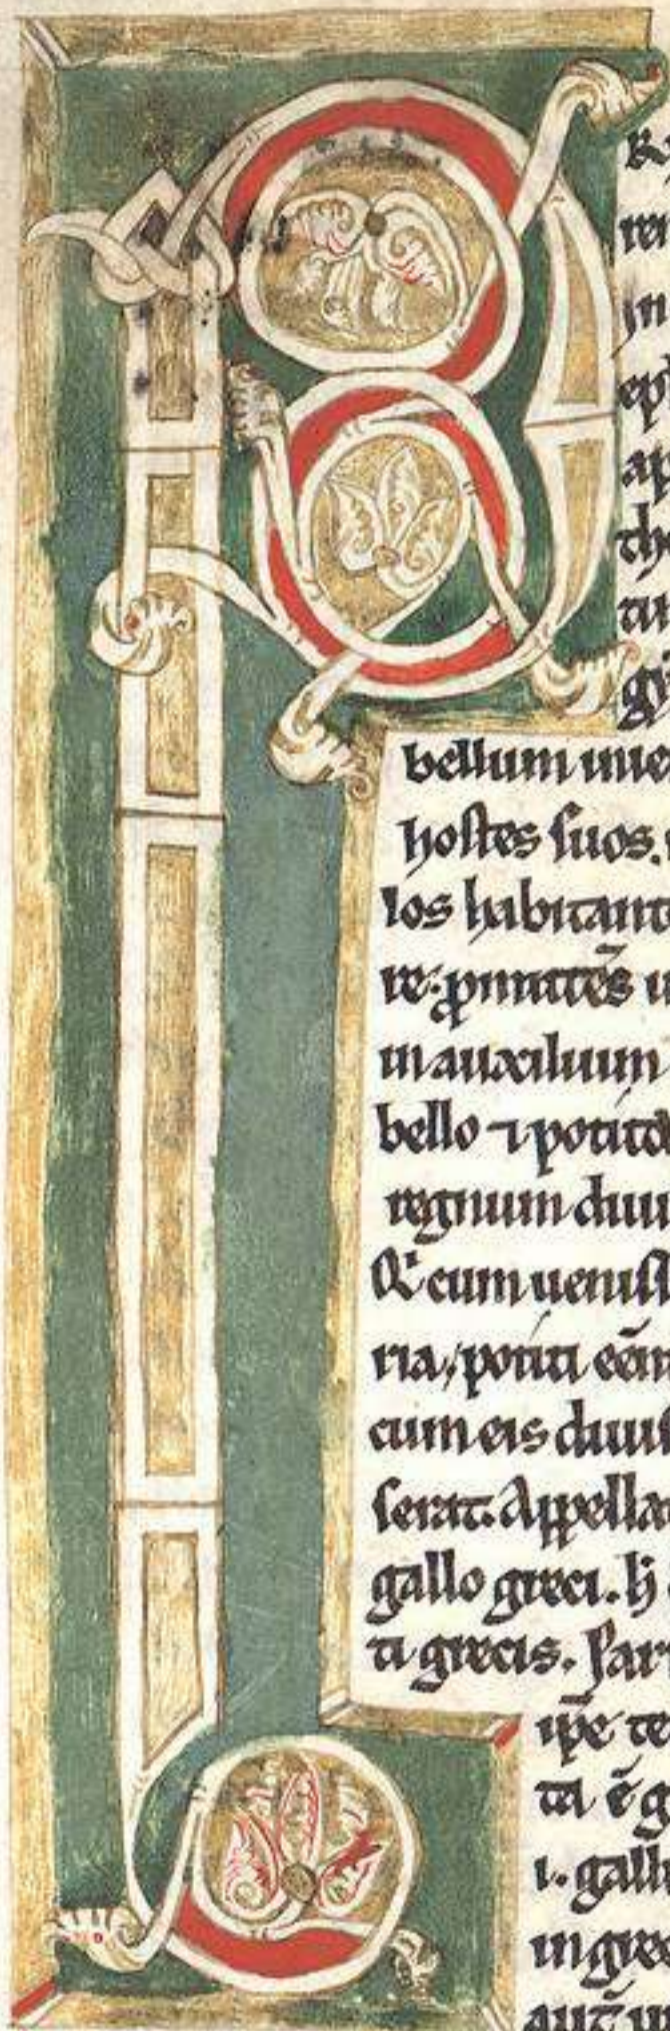 P
ren
in
epī
ap
tho
tu
gȳ
bellum inue
hostes suos.
los habitant
re. ꝓmittēs
in auxilium
bello ⁊ potito
regnum diui
cum uenis
ria, potiti
cum eis diuis
serat. Appella
gallo greci. h
ti grecis. Par
ip̄e te
ta ē g
i. galli
in grec